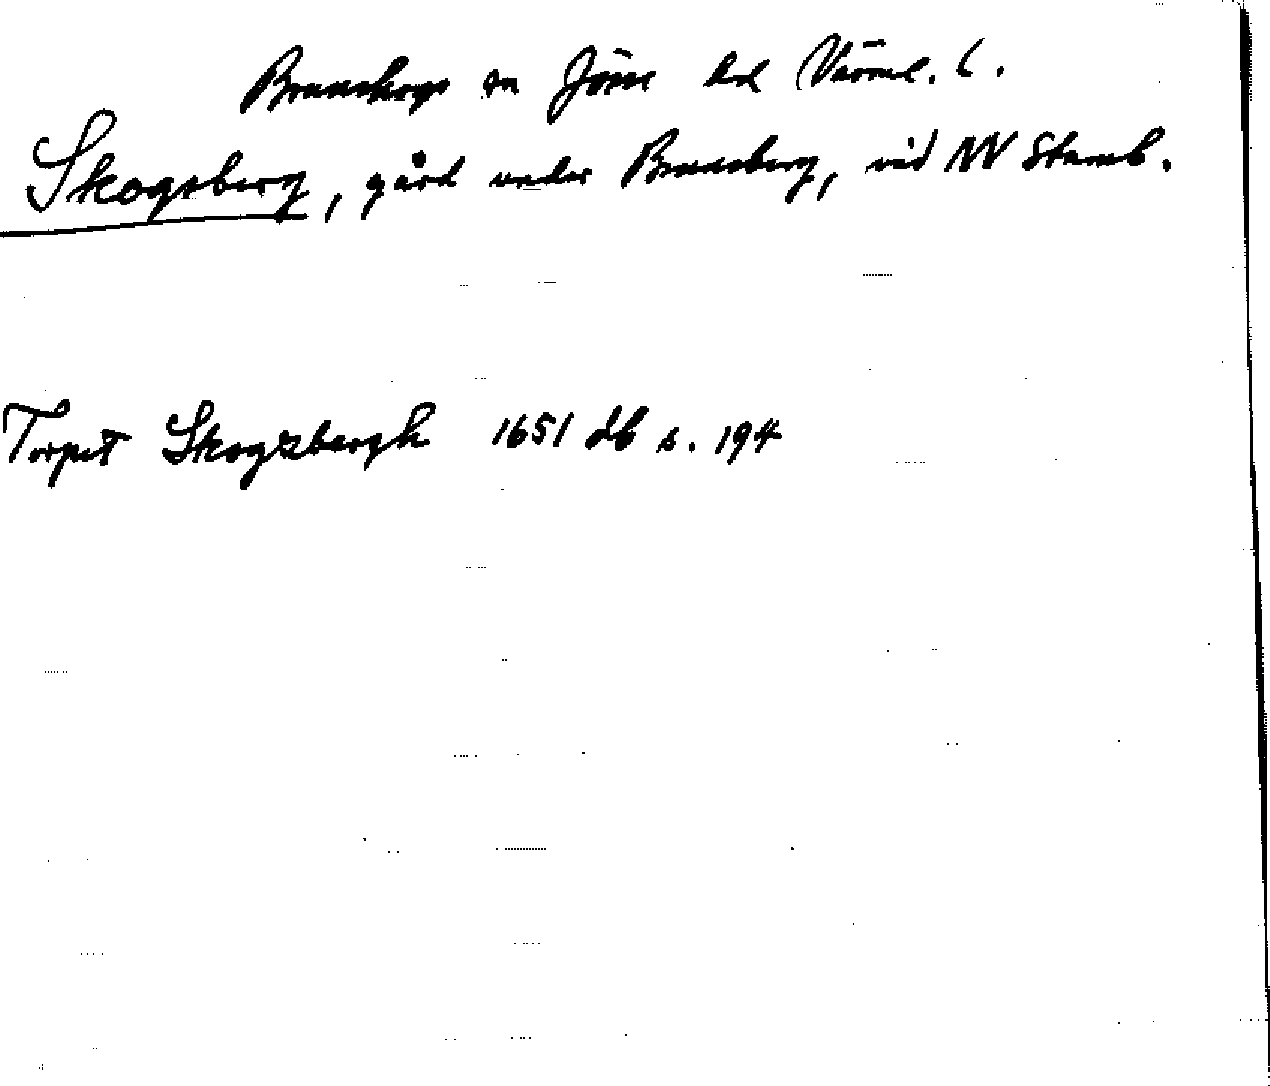 Brunskogs sn Jösse hd Värml. l.
Skogsberg, gård under Brunsberg, vid NV Stamb.
Torpet Skogzbergh 1651 db s. 194